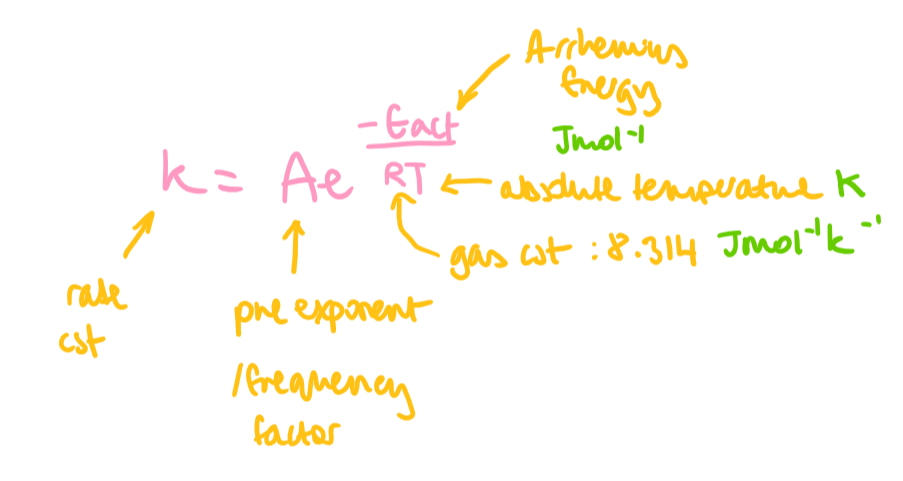 Arrhenius
Energy
Jmol⁻¹
k = Ae^(-Eact/RT)
absolute temperature K
gas cst : 8.314 Jmol⁻¹k⁻¹
rate
cst
pre exponent
/frequency
factor